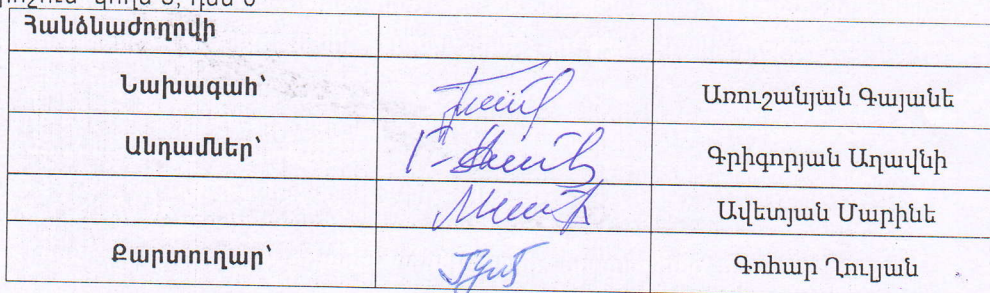 Հանձնաժողովի
Նախագահ՝ Առուշանյան Գայանե
Անդամներ՝ Գրիգորյան Աղավնի
Ավետյան Մարինե
Քարտուղար՝ Գոհար Ղուլյան